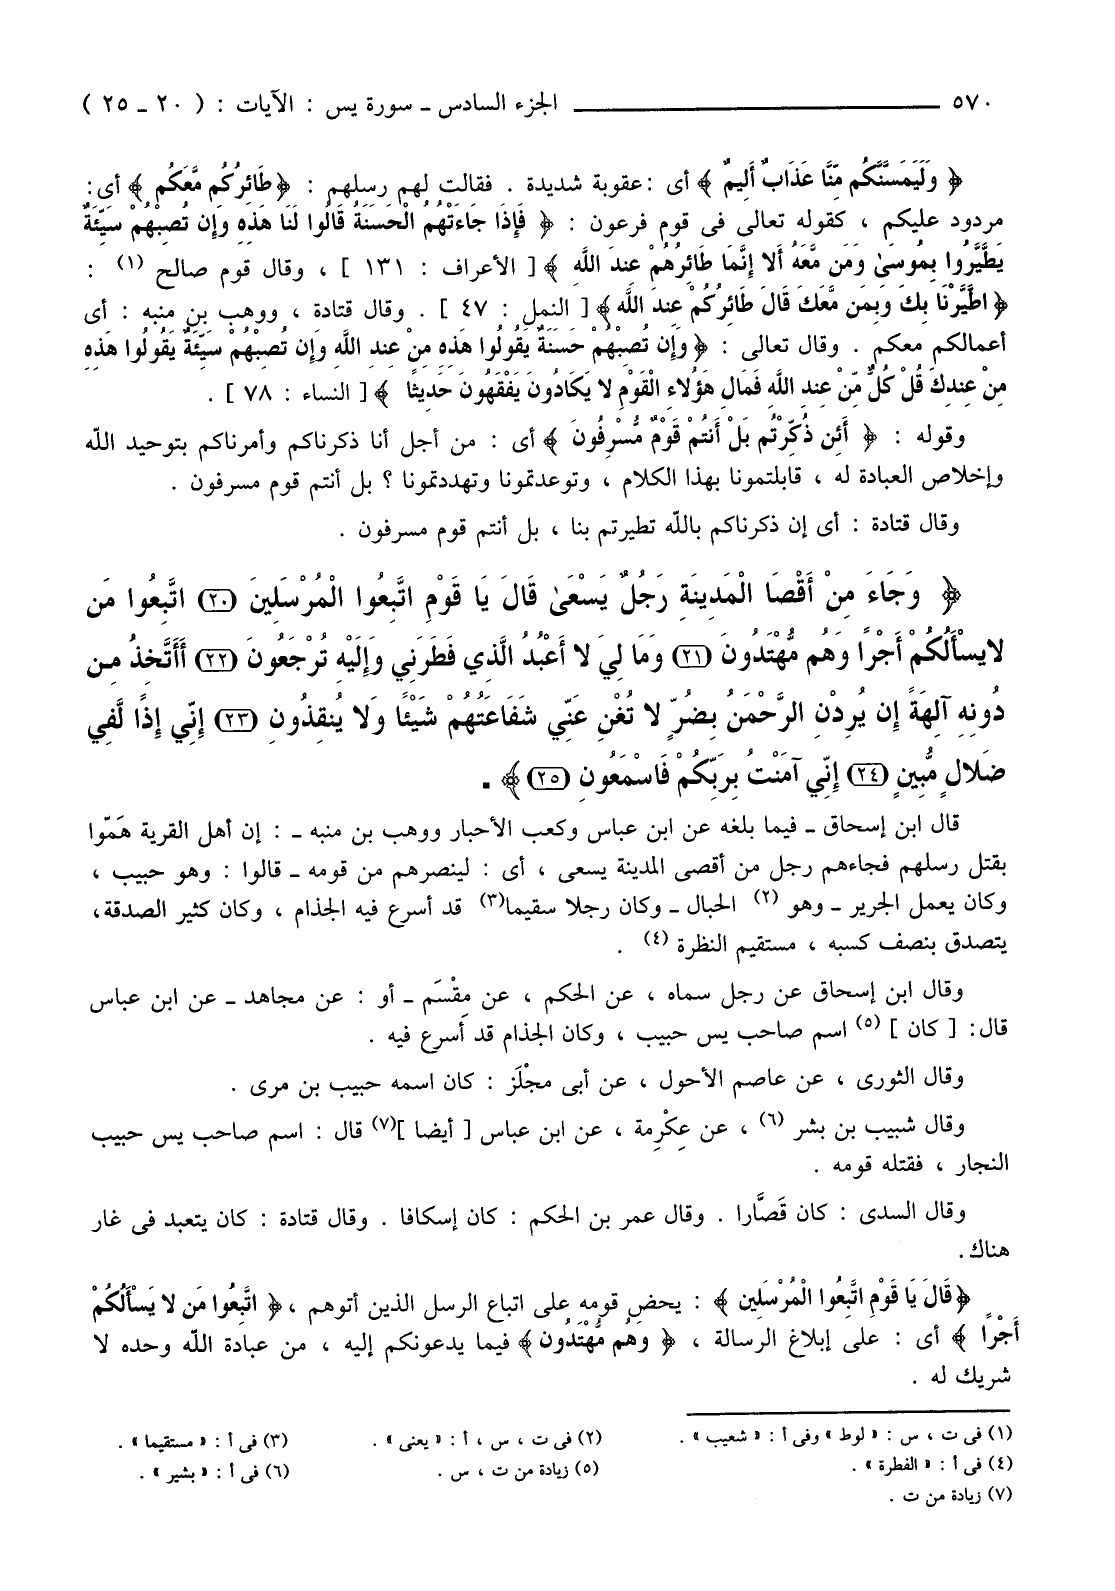 ٥٧٠ ــــــــــــــــــ الجزء السادس ـ سورة يس : الآيات : ( ٢٠ ـ ٢٥ )
﴿ وَلَيَمَسَّنَّكُم مِّنَّا عَذَابٌ أَلِيمٌ ﴾ أى :عقوبة شديدة . فقالت لهم رسلهم : ﴿طَائِرُكُم مَّعَكُم ﴾ أى:
مردود عليكم ، كقوله تعالى فى قوم فرعون : ﴿ فَإِذَا جَاءَتْهُمُ الْحَسَنَةُ قَالُوا لَنَا هَذِهِ وَإِن تُصِبْهُمْ سَيِّئَةٌ
يَطَّيَّرُوا بِمُوسَىٰ وَمَن مَّعَهُ أَلا إِنَّمَا طَائِرُهُمْ عِندَ اللَّهِ ﴾[ الأعراف : ١٣١ ] ، وقال قوم صالح (١) :
﴿اطَّيَّرْنَا بِكَ وَبِمَن مَّعَكَ قَالَ طَائِرُكُمْ عِندَ اللَّهِ﴾[ النمل : ٤٧ ] . وقال قتادة ، ووهب بن منبه : أى
أعمالكم معكم . وقال تعالى : ﴿وَإِن تُصِبْهُمْ حَسَنَةٌ يَقُولُوا هَذِهِ مِنْ عِندِ اللَّهِ وَإِن تُصِبْهُمْ سَيِّئَةٌ يَقُولُوا هَذِهِ
مِنْ عِندِكَ قُلْ كُلٌّ مِّنْ عِندِ اللَّهِ فَمَالِ هَؤُلاءِ الْقَوْمِ لا يَكَادُونَ يَفْقَهُونَ حَدِيثًا ﴾[ النساء : ٧٨ ] .
وقوله : ﴿ أَئِن ذُكِّرْتُم بَلْ أَنتُمْ قَوْمٌ مُّسْرِفُونَ ﴾ أى : من أجل أنا ذكرناكم وأمرناكم بتوحيد الله
وإخلاص العبادة له ، قابلتمونا بهذا الكلام ، وتوعدتمونا وتهددتمونا ؟ بل أنتم قوم مسرفون .
وقال قتادة : أى إن ذكرناكم بالله تطيرتم بنا ، بل أنتم قوم مسرفون .
﴿ وَجَاءَ مِنْ أَقْصَا الْمَدِينَةِ رَجُلٌ يَسْعَىٰ قَالَ يَا قَوْمِ اتَّبِعُوا الْمُرْسَلِينَ (٢٠) اتَّبِعُوا مَن
لايسْأَلُكُمْ أَجْرًا وَهُم مُّهْتَدُونَ (٢١) وَمَا لِيَ لا أَعْبُدُ الَّذِي فَطَرَنِي وَإِلَيْهِ تُرْجَعُونَ (٢٢) أَأَتَّخِذُ مِن
دُونِهِ آلِهَةً إِن يُرِدْنِ الرَّحْمَنُ بِضُرٍّ لا تُغْنِ عَنِّي شَفَاعَتُهُمْ شَيْئًا وَلا يُنقِذُونِ (٢٣) إِنِّي إِذًا لَّفِي
ضَلالٍ مُّبِينٍ (٢٤) إِنِّي آمَنتُ بِرَبِّكُمْ فَاسْمَعُونِ (٢٥) ﴾ .
قال ابن إسحاق ـ فيما بلغه عن ابن عباس وكعب الأحبار ووهب بن منبه ـ : إن أهل القرية هَمّوا
بقتل رسلهم فجاءهم رجل من أقصى المدينة يسعى ، أى : لينصرهم من قومه ـ قالوا : وهو حبيب ،
وكان يعمل الجرير ـ وهو (٢) الحبال ـ وكان رجلا سقيما(٣) قد أسرع فيه الجذام ، وكان كثير الصدقة،
يتصدق بنصف كسبه ، مستقيم النظرة (٤) .
وقال ابن إسحاق عن رجل سماه ، عن الحكم ، عن مِقْسَم ـ أو : عن مجاهد ـ عن ابن عباس
قال: [ كان ] (٥) اسم صاحب يس حبيب ، وكان الجذام قد أسرع فيه .
وقال الثورى ، عن عاصم الأحول ، عن أبى مجْلَز : كان اسمه حبيب بن مرى .
وقال شبيب بن بشر (٦) ، عن عِكْرِمة ، عن ابن عباس [ أيضا ](٧) قال : اسم صاحب يس حبيب
النجار ، فقتله قومه .
وقال السدى : كان قَصَّارا . وقال عمر بن الحكم : كان إسكافا . وقال قتادة : كان يتعبد فى غار
هناك.
﴿قَالَ يَا قَوْمِ اتَّبِعُوا الْمُرْسَلِين ﴾ : يحض قومه على اتباع الرسل الذين أتوهم ،﴿ اتَّبِعُوا مَن لا يَسْأَلُكُمْ
أَجْرًا ﴾ أى : على إبلاغ الرسالة ، ﴿ وَهُم مُّهْتَدُون﴾ فيما يدعونكم إليه ، من عبادة الله وحده لا
شريك له .
(١) فى ت ، س : « لوط » وفى أ : « شعيب » . (٢) فى ت ، س ، أ : « يعنى » . (٣) فى أ : « مستقيما » .
(٤) فى أ : « الفطرة » . (٥) زيادة من ت ، س . (٦) فى أ : « بشير » .
(٧) زيادة من ت .